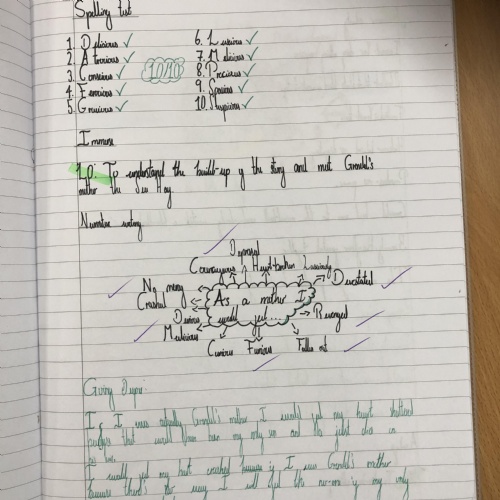 Spelling test
1. Delicious ✓
2. Atrocious ✓
3. Conscious ✓
4. Ferocious ✓
5. Gracious ✓
10/10
6. Luscious ✓
7. Malicious ✓
8. Precious ✓
9. Spacious ✓
10. Suspicious ✓
Immerse
L.O: To understand the build-up of the story and meet Grendel's
mother the Sea Hag
Narrative writing
Depressed
Courageous
Heart-broken
No mercy
Devastated
Crushed
As a mother I
would feel...
Revenged
Malicious
Curious
Furious
Fallen out
Going Deeper:
If I was actually Grendel's mother I would feel my heart shattered
because that would have been my only son and he's just
I would feel my heart crushed because if I was Grendel's mother
because there's no way I will feel the my only